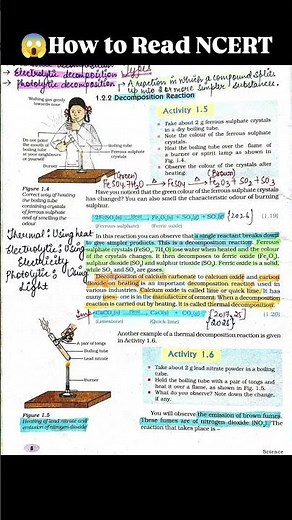 😱How to Read NCERT
→ Electrolytic decomposition
Types
→ Photolytic decomposition
→ A reaction in which a compound splits
up into 2 or more simpler substances.
1.2.2 Decomposition Reaction
Wafting gently
towards nose
Do not point
the mouth of
boiling tube
at your neighbours
or yourself
Boiling tube
Ferrous sulphate
crystals
Burner
Activity 1.5
Take about 2 g ferrous sulphate crystals
in a dry boiling tube.
Note the colour of the ferrous sulphate
crystals.
Heat the boiling tube over the flame of
a burner or spirit lamp as shown in
Fig. 1.4.
Observe the colour of the crystals after
heating.
(Green)
(Brown)
FeSO4.7H2O → FeSO4 → Fe2O3 + SO2 + SO3
Figure 1.4
Correct way of heating
the boiling tube
containing crystals
of ferrous sulphate
and of smelling the
odour
Have you noticed that the green colour of the ferrous sulphate crystals
has changed? You can also smell the characteristic odour of burning
sulphur.
2FeSO4(s) Heat→ Fe2O3(s) + SO2(g) + SO3(g) (1.19)
(Ferrous sulphate) (Ferric oxide)
Thermal: Using heat
Electrolytic: Using
Electricity
Photolytic: Using
Light
In this reaction you can observe that a single reactant breaks down
to give simpler products. This is a decomposition reaction. Ferrous
sulphate crystals (FeSO4. 7H2O) lose water when heated and the colour
of the crystals changes. It then decomposes to ferric oxide (Fe2O3),
sulphur dioxide (SO2) and sulphur trioxide (SO3). Ferric oxide is a solid,
while SO2 and SO3 are gases.
Decomposition of calcium carbonate to calcium oxide and carbon
dioxide on heating is an important decomposition reaction used in
various industries. Calcium oxide is called lime or quick lime. It has
many uses – one is in the manufacture of cement. When a decomposition
reaction is carried out by heating, it is called thermal decomposition.
CaCO3(s) Heat→ CaO(s) + CO2(g) (1.20)
(Limestone) (Quick lime)
A pair of tongs
Boiling tube
Lead nitrate
Burner
Another example of a thermal decomposition reaction is given
in Activity 1.6.
Activity 1.6
Take about 2 g lead nitrate powder in a boiling
tube.
Hold the boiling tube with a pair of tongs and
heat it over a flame, as shown in Fig. 1.5.
What do you observe? Note down the change,
if any.
Figure 1.5
Heating of lead nitrate and
emission of nitrogen dioxide
You will observe the emission of brown fumes.
These fumes are of nitrogen dioxide (NO2). The
reaction that takes place is –
8
Science